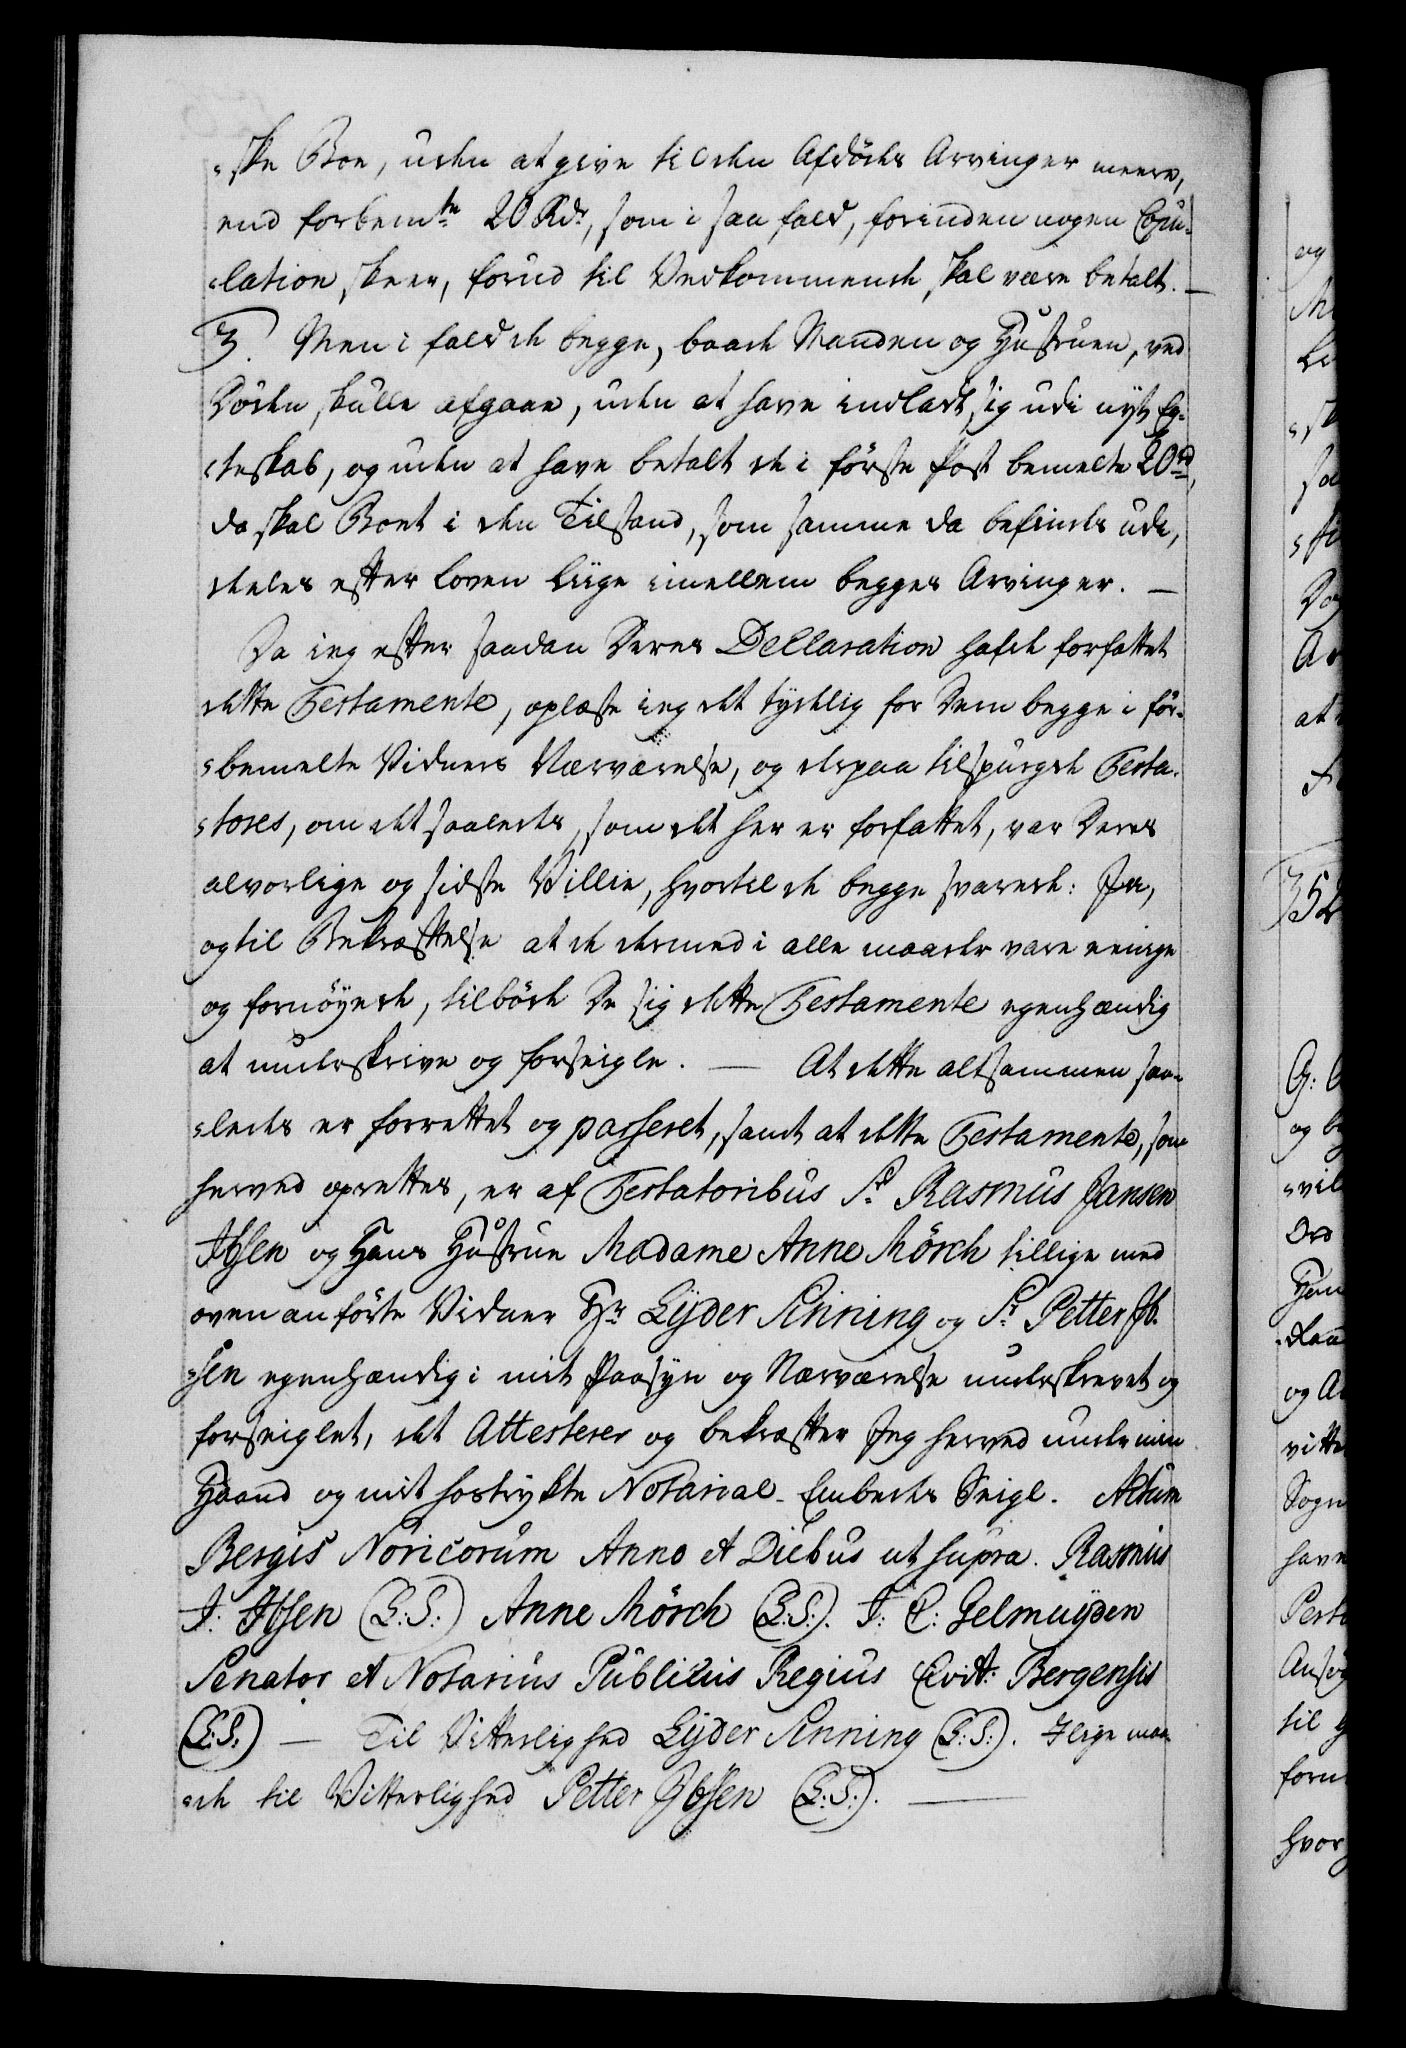 -ske Boe, uden at give til den Afdödes Arvinger meere,
end forbem.te 20 Rdr, som i saa fald, forinden nogen Copu-
-lation skeer, forud til Vedkommende skal være betalt. —
3. Men i fald de begge, baade Manden og Hustruen, ved
Döden skulle afgaae, uden at have indladt sig udi nyt Eg-
-teskab, og uden at have betalt de i förste Post bemelte 20 rd,
da skal Boet i den Tilstand, som samme da befindes udi,
deeles efter Loven liige imellem begges Arvinger. —
Da ieg efter saadan Deres Declaration hafde forfattet
dette Testamente, oplæste ieg det tydelig for Dem begge i for-
-bemelte Vidners Nærværelse, og derpaa tilspurgde Testa-
-tores, om det saaledes, som det her er forfattet, var Deres
alvorlige og sidste Villie, hvortil de begge svarede: Ja,
og til Bekræftelse at de dermed i alle maader vare eenige
og fornöyede, tilböd De sig dette Testamente egenhændig
at underskrive og forseigle. — At dette altsammen saa-
-ledes er forrettet og passeret, samt at dette Testamente, som
herved oprettes, er af Testatoribus Sr. Rasmus Jansen
Ibsen og Hans Hustrue Madame Anne Mörch tillige med
ovenanförte Vidner Hr Lyder Sinning og Sr. Petter Ib-
-sen egenhændig i mit Paasyn og Nærværelse underskrevet og
forseiglet, det Attesterer og bekræfter Jeg herved under min
Haand og mit hostrykte Notarial-Embedes Seigl. Actum
Bergis Noricorum Anno et Diebus ut supra. Rasmus
J. Ibsen (L:S:) Anne Mörch (L:S:). J: C: Gelmuyden
Senator et Notarius Publicus Regius Civit: Bergensis
(L:S:) — Til Vitterlighed Lyder Sinning (L:S:). Ilige maa-
-de til Vitterlighed Petter Ibsen (L:S:). —